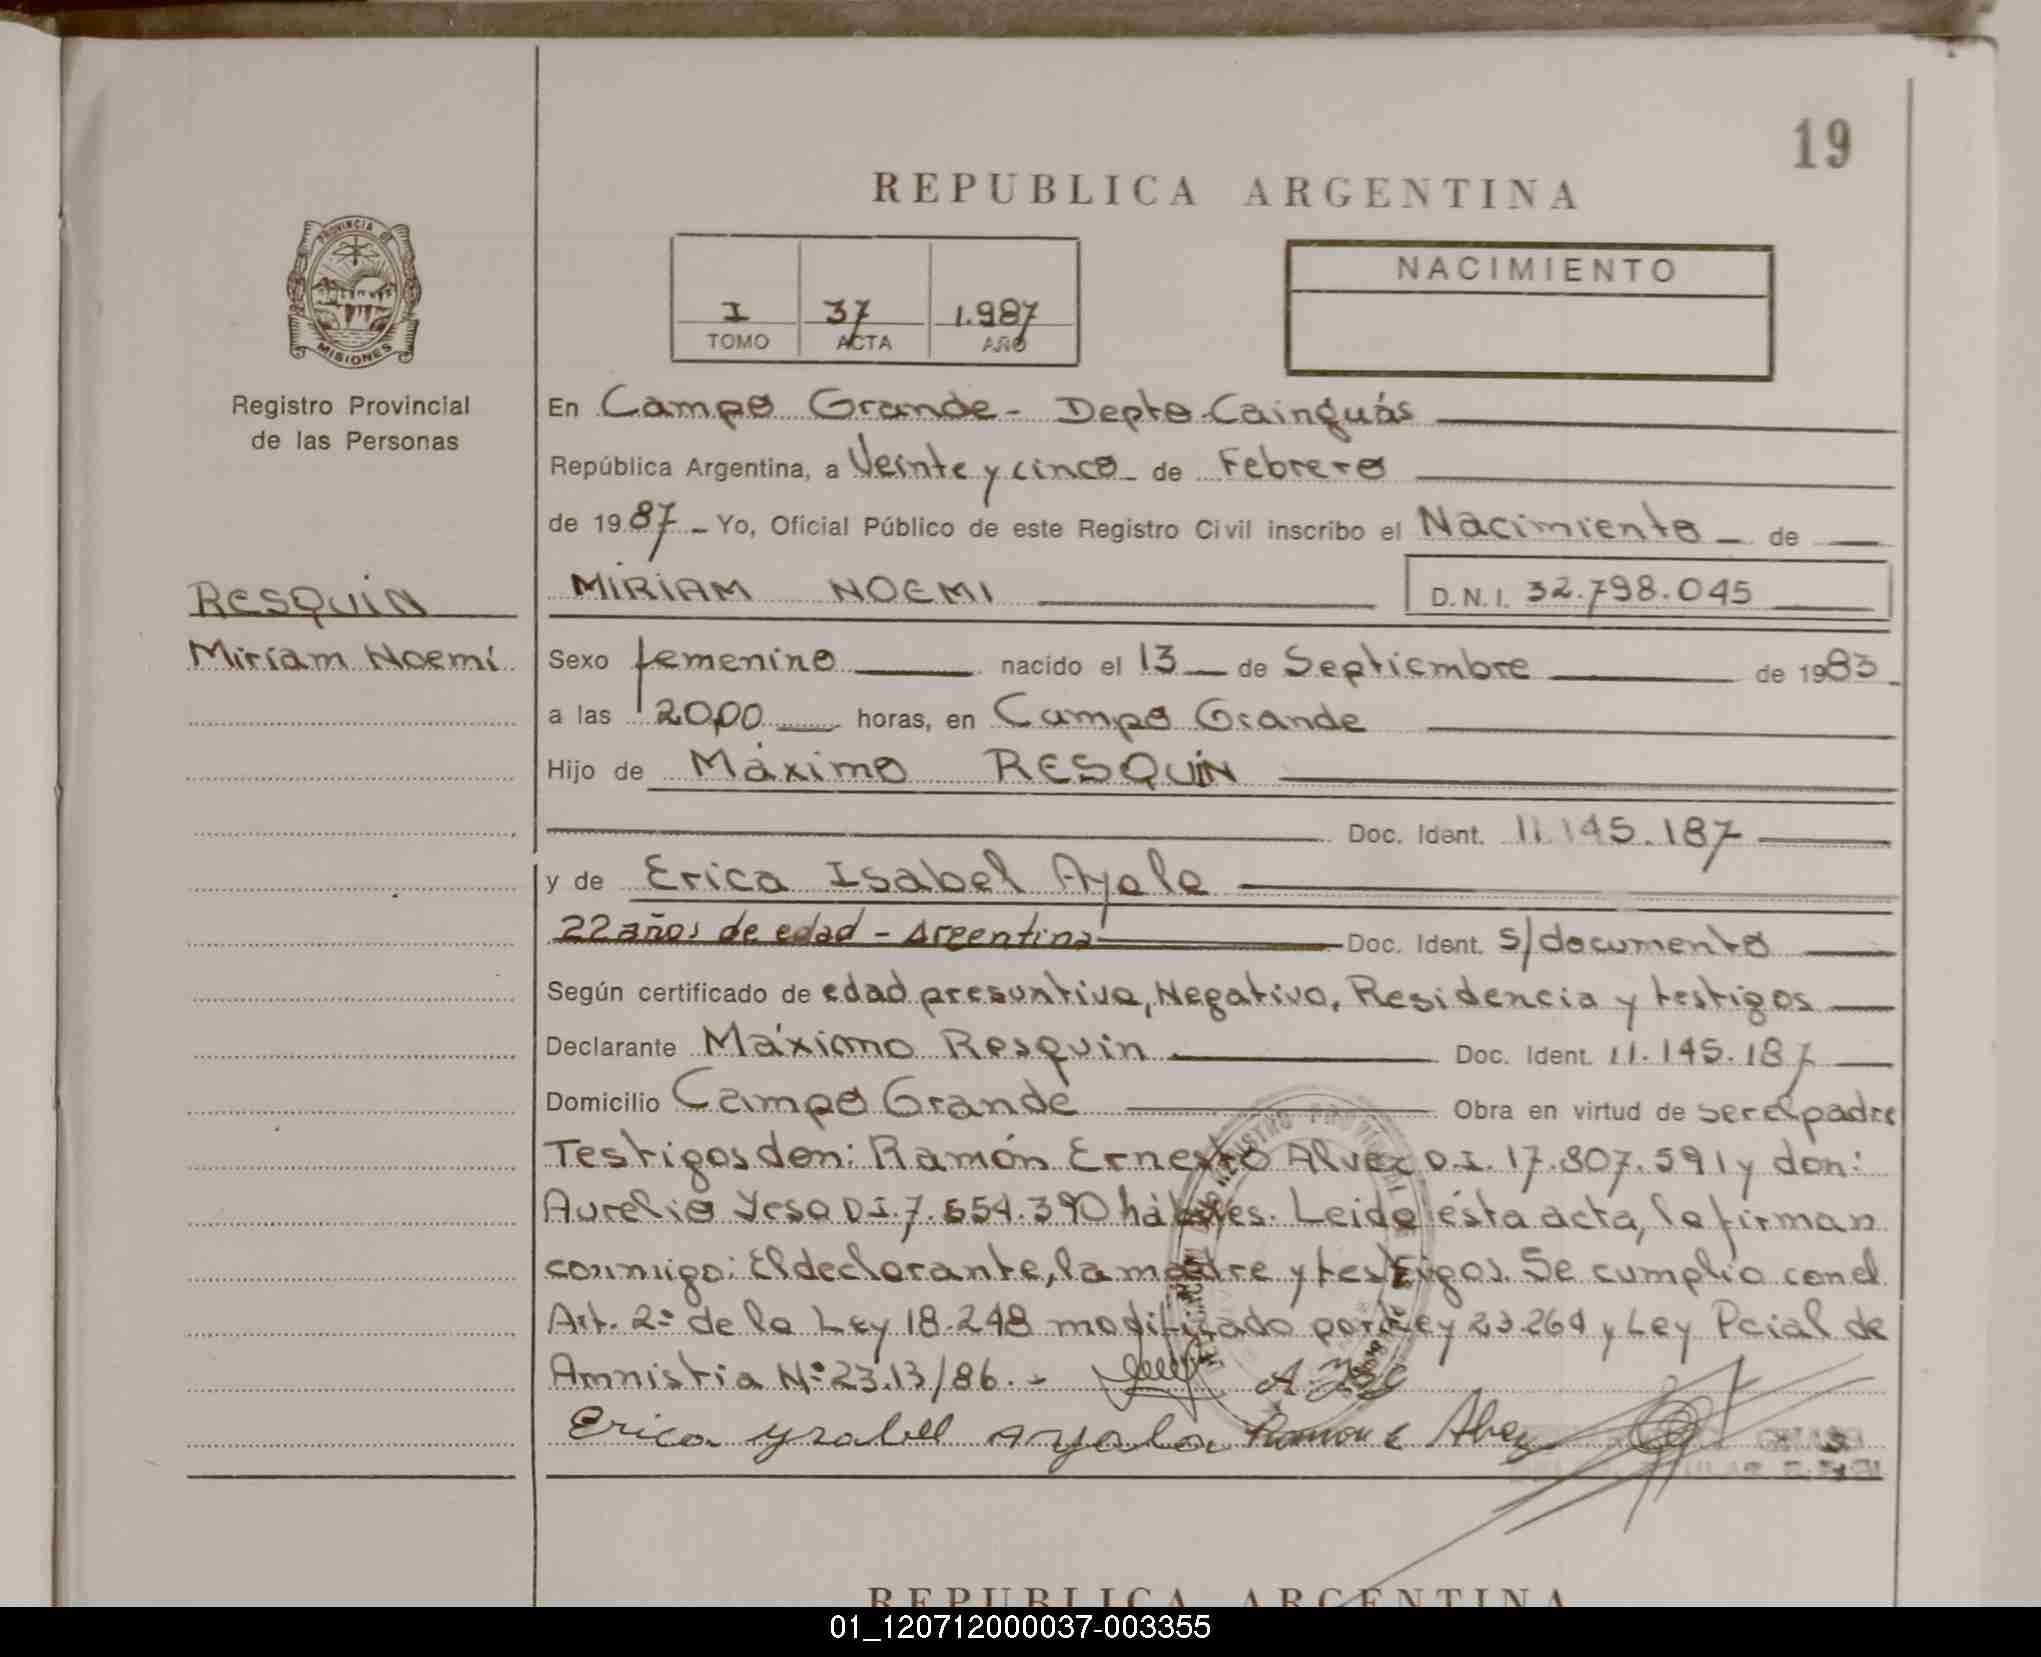 19
REPUBLICA ARGENTINA
PROVINCIA DE
MISIONES
Registro Provincial
de las Personas
I 37 1.987
TOMO ACTA AÑO
NACIMIENTO
En Campo Grande - Depto. Cainguás
República Argentina, a Veinte y cinco - de Febrero
de 1987 - Yo, Oficial Público de este Registro Civil inscribo el Nacimiento - de
RESQUIN
Miriam Noemí
MIRIAM NOEMI D.N.I. 32.798.045
Sexo femenino nacido el 13 de Septiembre de 1983
a las 20,00 horas, en Campo Grande
Hijo de Máximo RESQUIN
Doc. Ident. 11.145.187
y de Erica Isabel Ayala
22 años de edad - Argentina Doc. Ident. s/documento
Según certificado de edad presuntiva, Negativa, Residencia y testigos
Declarante Máximo Resquin Doc. Ident. 11.145.187
Domicilio Campo Grande Obra en virtud de ser el padre
Testigos don: Ramón Ernesto Alvez D.I. 17.807.591 y don:
Aurelio Yrsa D.I. 7.654.390 hábiles. Leida ésta acta, la firman
conmigo: El declarante, la madre y testigos. Se cumplio con el
Art. 2º de la Ley 18.248 modificado por Ley 23.264 y Ley Pcial de
Amnistia Nº 23.13/86.-
Erica ysabel Ayala Ramon E Alvez
REPUBLICA ARGENTINA
01_120712000037-003355